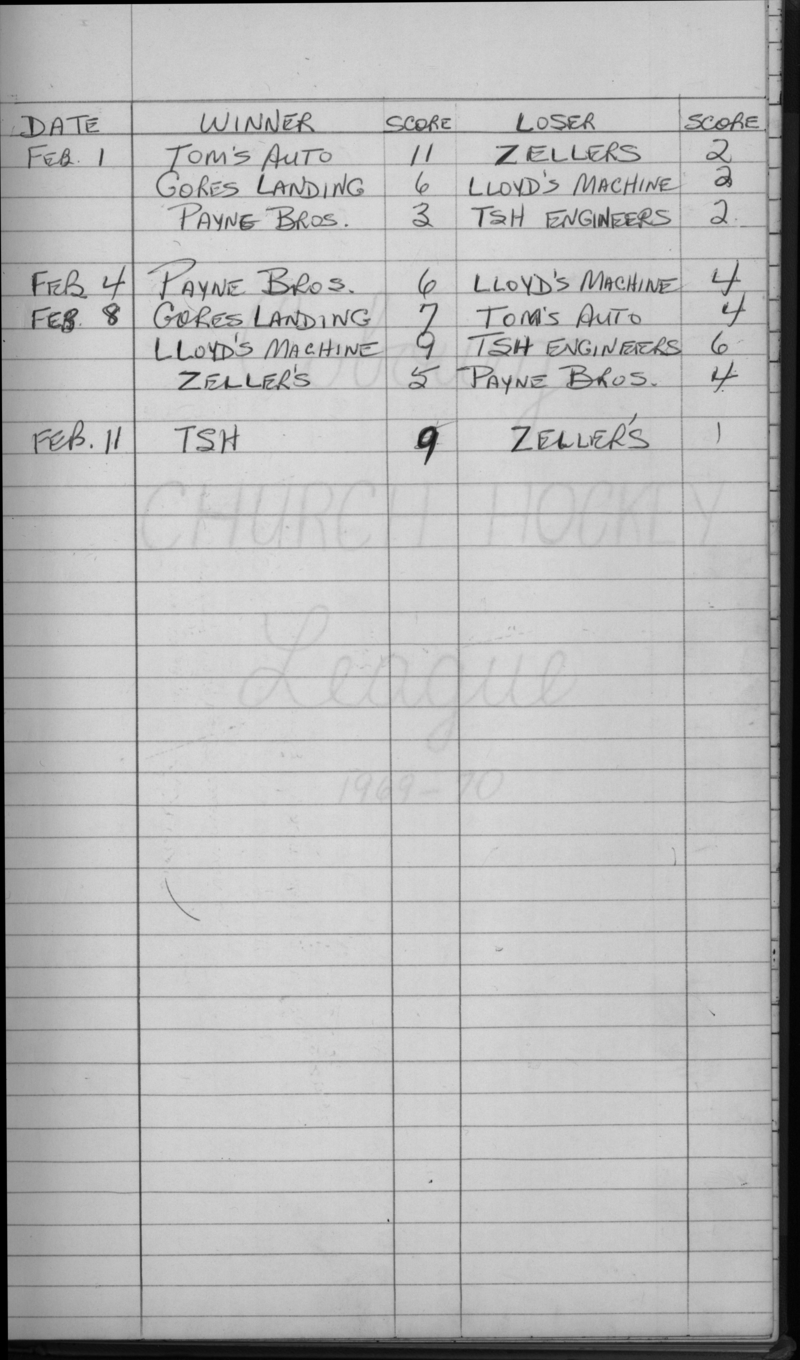 DATE WINNER SCORE LOSER SCORE
FEB. 1 TOM'S AUTO 11 ZELLERS 2
GORES LANDING 6 LLOYD'S MACHINE 2
PAYNE BROS. 3 TSH ENGINEERS 2
FEB 4 PAYNE BROS. 6 LLOYD'S MACHINE 4
FEB. 8 GORES LANDING 7 TOM'S AUTO 4
LLOYD'S MACHINE 9 TSH ENGINEERS 6
ZELLER'S 5 PAYNE BROS. 4
FEB. 11 TSH 9 ZELLER'S 1
CHURCH HOCKEY
League
1969-70